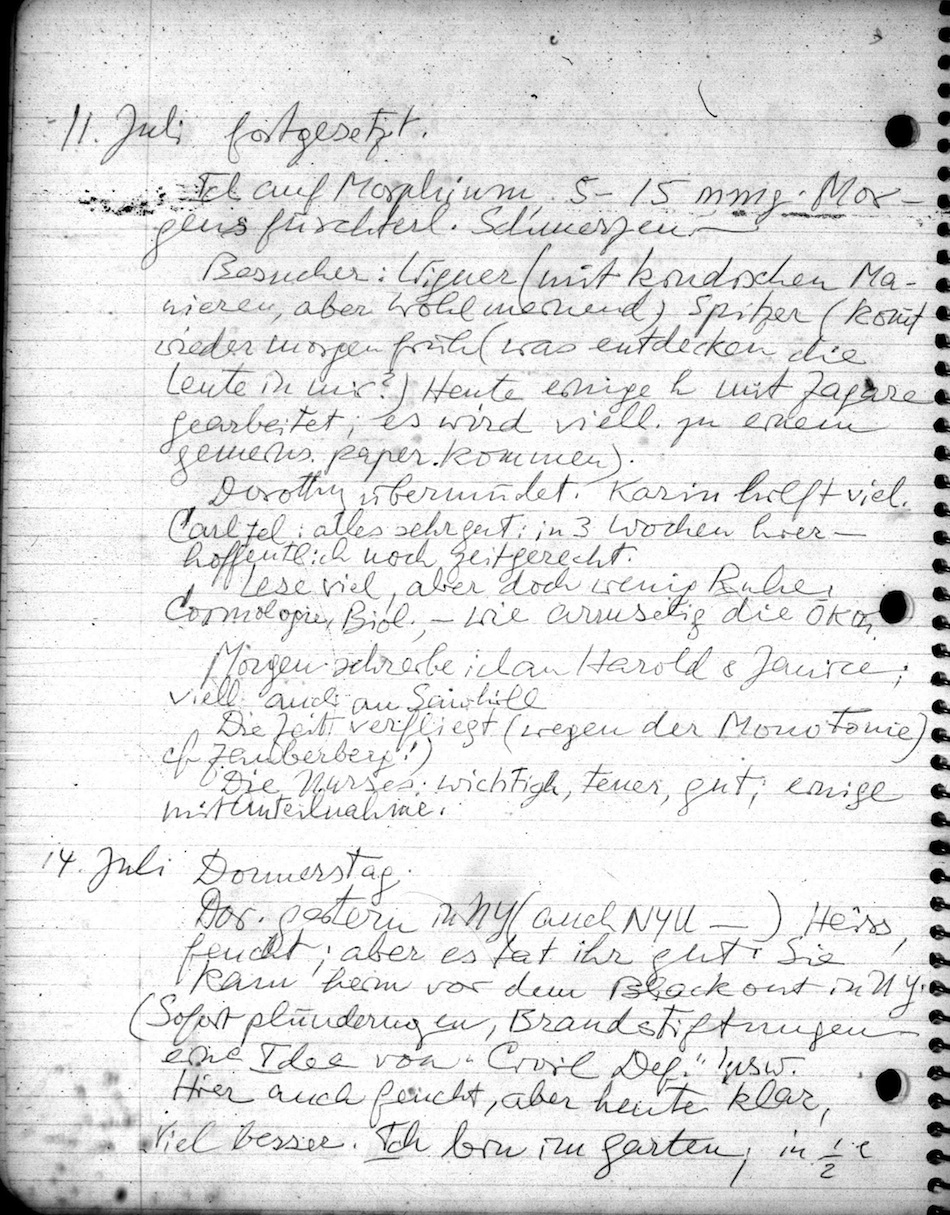 11. Juli fortgesetzt.
Ich auf Morphium 5–15 mmg. Mor-
gens fürchterl. Schmerzen—
Besucher: Wigner (mit komischen Ma-
nieren, aber wohlmeinend) Spitzer (komt
wieder morgen früh (was entdecken die
Leute in mir?) Heute einige h mit
gearbeitet; es wird viell. zu einem
gemeins. paper kommen).
Dorothy übermüdet. Karin hilft viel.
Carl tel: alles sehr gut: in 3 Wochen hier—
hoffentlich noch zeitgerecht.
Lese viel, aber doch wenig Ruhe.
Cosmologie, Biol., – wie armselig die Ökon.
Morgen schreibe ich an Harold & Janice;
viell. auch an
Die Zeit verfliegt (wegen der Monotonie)
cf Zauberberg!)
Die Nurses: wichtig, teuer, gut; einige
mit Anteilnahme.
14. Juli Donnerstag.
Dor. gestern in NY (auch NYU —) Heiss,
feucht; aber es tat ihr gut. Sie
kam heim vor dem Blackout in NY.
(Sofort plünderungen, Brandstiftungen
eine Idee von "Civil Def." usw.
Hier auch feucht, aber heute klar,
viel besser. Ich bin im garten, in ½